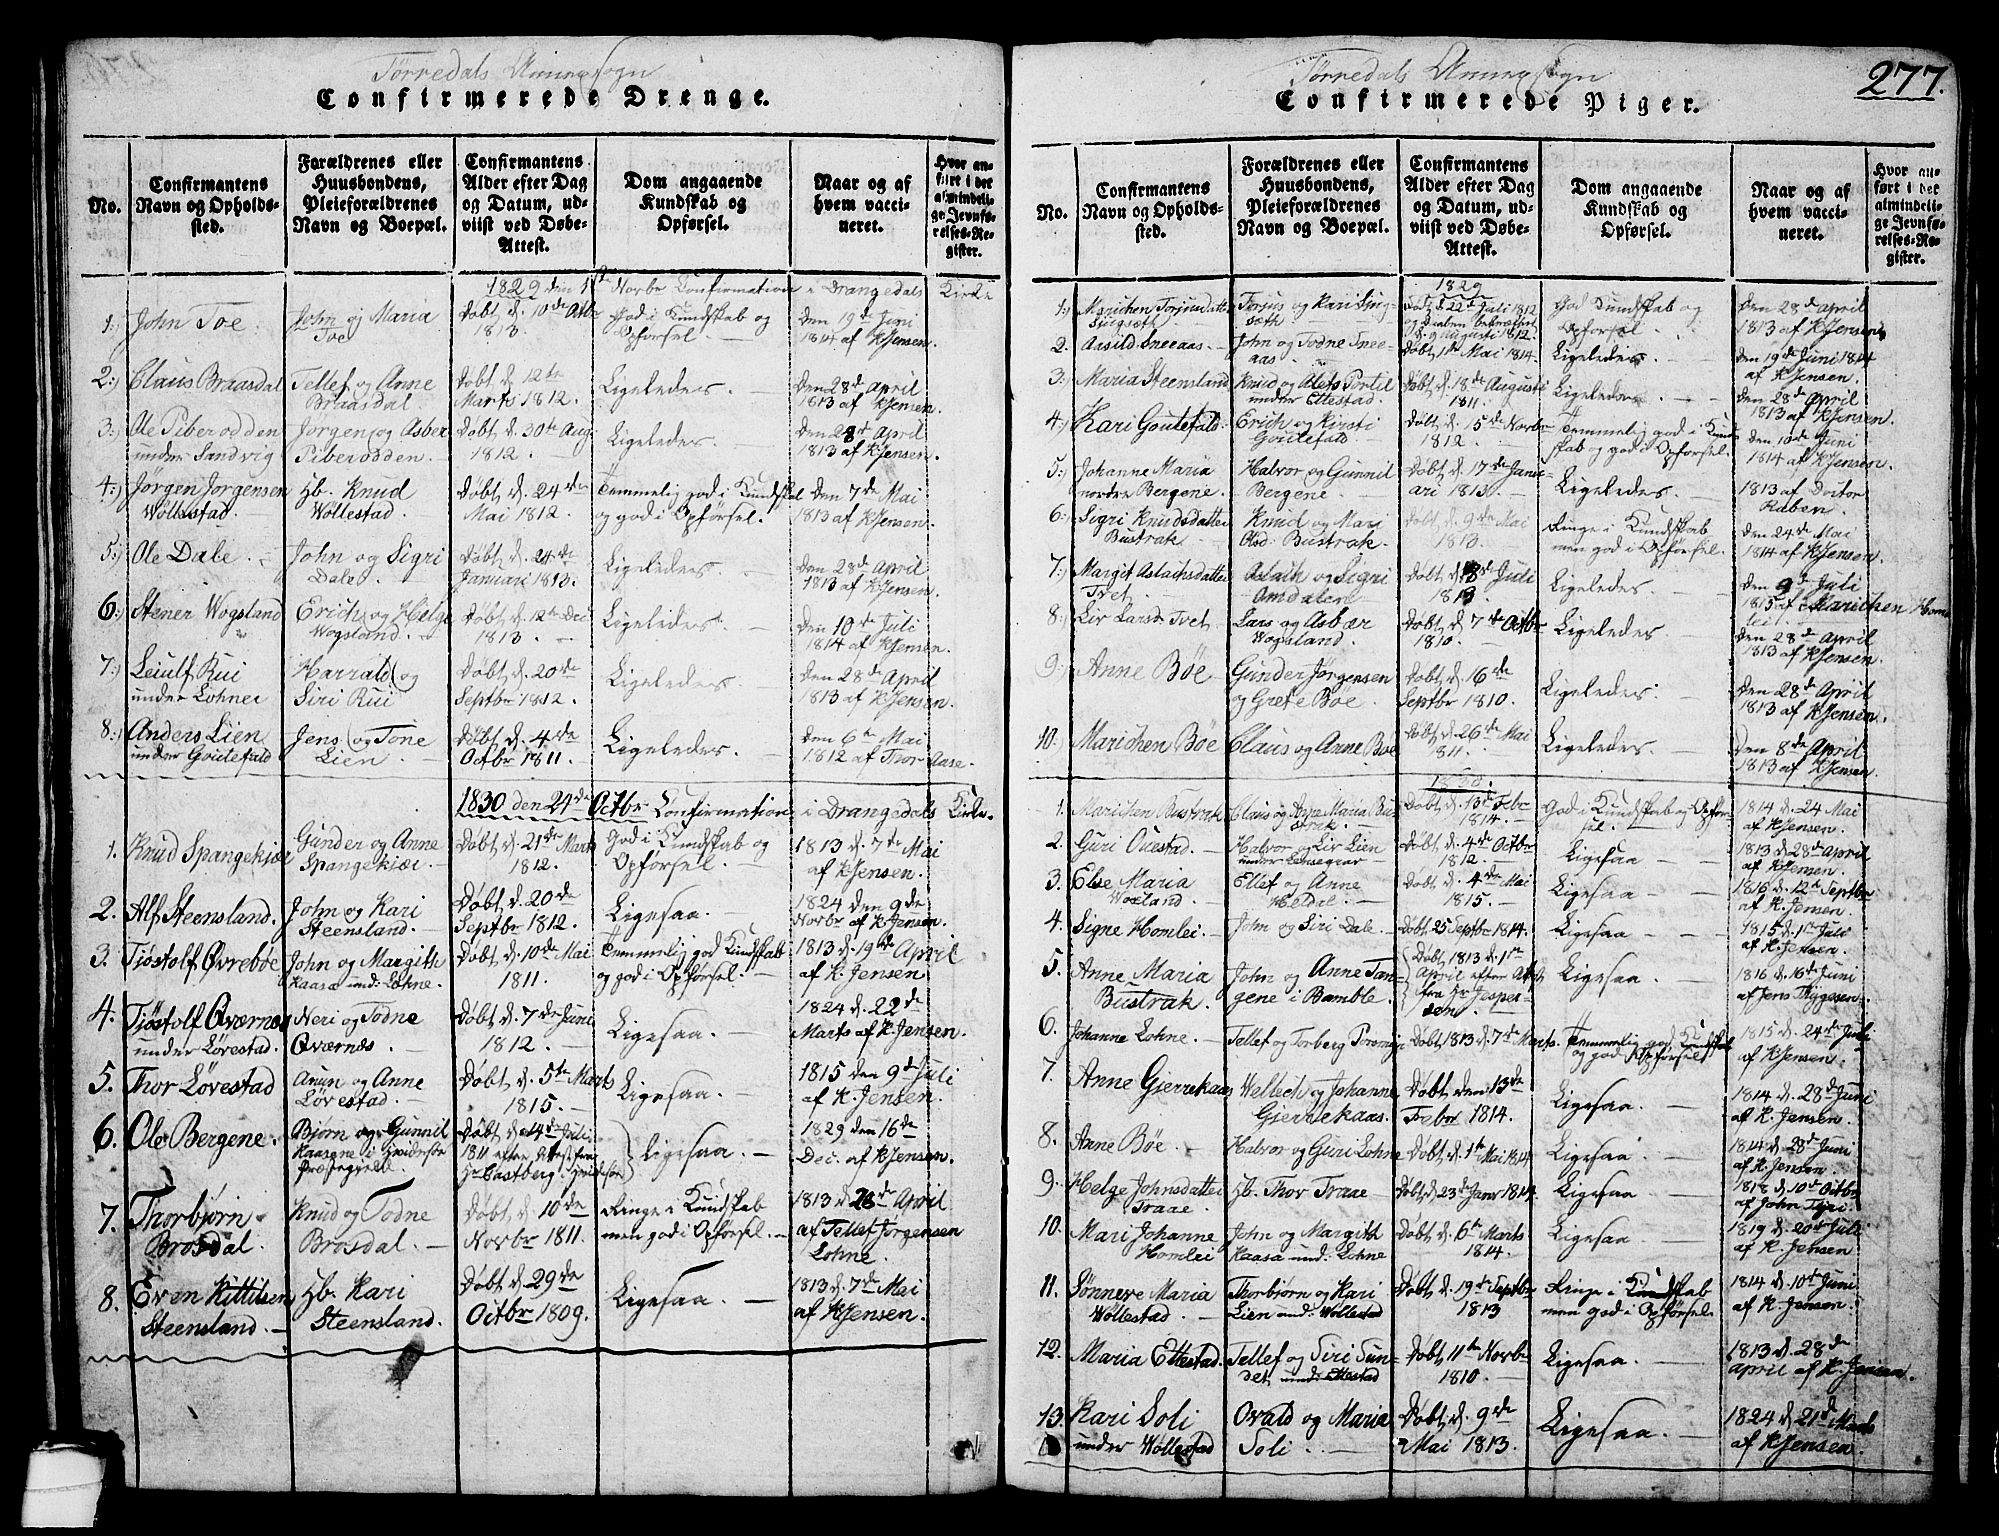 Tørredals Annexsogn
Confirmerede Drenge.
No.
Confirmantens
Navn og Opholds-
sted.
Forældrenes eller
Huusbondens,
Pleieforældrenes
Navn og Boepæl.
Confirmantens
Alder efter Dag
og Datum, ud-
viist ved Døbe-
Attest.
Dom angaaende
Kundskab og
Opførsel.
Naar og af
hvem vacci-
neret.
Hvor an-
ført i det
almindeli-
ge Jevnfø-
relses-Re-
gister.
1829 den 1ste Novbr Confirmation i Drangedals Kirke
1.) John Toe.
John og Maria
Toe
Døbt d. 10de Octbr
1813.
God i Kundskab og
Opførsel.
Den 19de Juni
1814 af K. Jensen.
2.) Claus Braasdal
Tellef og Anne
Braasdal
Døbt d. 12te
Marts 1812.
Ligeledes.
Den 28d April
1813 af K. Jensen.
3.) Ole Piberodden
under Sandvig
Jørgen og Asber
Piberodden.
Døbt d. 30te Aug.
1812.
Ligeledes.
Den 28de April
1813 af K. Jensen.
4.) Jørgen Jørgensen
Wøllestad.
Hb. Knud
Wøllestad.
Døbt d. 24de
Mai 1812.
Temmelig god i Kundskab
og god i Opførsel.
Den 7de Mai
1813 af K. Jensen.
5.) Ole Dale.
John og Sigri
Dale.
Døbt d. 24de
Januari 1813.
Ligeledes.
Den 28de April
1813 af K. Jensen.
6.) Stener Wogsland
Erich og Helge
Wogsland.
Døbt d. 12te Dec
1813.
Ligeledes.
Den 10de Juli
1814 af K. Jensen.
7.) Leiulf Rui
under Lohne
Harrald og
Siri Rui
Døbt d. 20de
Septbr 1812.
Ligeledes.
Den 28de April
1813 af K. Jensen.
8.) Anders Lien
under Goutefald
Jens og Tone
Lien.
Døbt d. 4de
Octbr 1811.
Ligeledes.
Den 6te Mai
1812 af Thor Aase.
1830 den 24de Octbr Confirmation i Drangedals Kirke.
1. Knud Spangekiær
Gunder og Anne
Spangekiær
Døbt d. 21de Marts
1812.
God i Kundskab og
Opførsel.
1813 d. 7de Mai
af K. Jensen.
2. Alf Steensland.
John og Kari
Steensland.
Døbt d. 20de
Septbr 1812.
Ligesaa.
1824 den 9de
Novbr af K. Jensen.
3. Tjøstolf Øvrebøe
John og Margith
Kaasa und. Lohne.
Døbt d. 10de Mai
1811.
Temmelig god Kundskab
og god i Opførsel.
1813 d. 19de April
af K. Jensen.
4. Tjøstolf Qværnes
under Løvestad.
Neri og Todne
Qværnæs.
Døbt d. 7de Juni
1812.
Ligesaa.
1824 d. 22de
Marts af K. Jensen.
5. Thor Løvestad
Anun og Anne
Løvestad.
Døbt d. 5te Marts
1815.
Ligesaa.
1815 den 9d Juli
af K. Jensen.
6. Ole Bergene.
Bjørn og Gunnil
Kaasene i Hvidesøe
Præstegjeld.
Døbt d. 4de Juli
1811 efter Attest fra
Hr Castberg i Hvidesøe
Ligesaa.
1829 den 16de
Dec. af K. Jensen.
7. Thorbjørn
Brosdal.
Knud og Todne
Brosdal.
Døbt d. 10de
Novbr 1811.
Ringe i Kundskab
men god i Opførsel.
1813 d. 28de April
af Tellef Jørgensen
Lohne.
8. Even Kittilsen
Steensland.
Hb. Kari
Steensland.
Døbt d. 29de
Octbr 1809.
Ligesaa.
1813 d. 7de Mai
af K. Jensen.
Tørredals Annexsogn
277.
Confirmerede Piger.
No.
Confirmantens
Navn og Opholds-
sted.
Forældrenes eller
Huusbondens,
Pleieforældrenes
Navn og Boepæl.
Confirmantens
Alder efter Dag
og Datum, ud-
viist ved Døbe-
Attest.
Dom angaaende
Kundskab og
Opførsel.
Naar og af
hvem vacci-
neret.
Hvor an-
ført i det
almindeli-
ge Jevnfø-
relses-Re-
gister.
1829
1.) Marichen Torjusdatter
Torjus og Kari
Død d. 22de Juli 1812
d. 9 Augusti 1812.
God Kundskab og
Opførsel.
Den 28d April
1813 af K. Jensen
2. Aasild Sneeaas
John og Todne Snee-
aas
Døbt 1ste Mai 1814.
Ligeledes
Den 19de Juni 1814
af K. Jensen.
3.) Maria Steensland
Knud og Alets Portil
under Ettestad.
Døbt d. 18de Augusti
1811.
Ligeledes
Den 28de April
1813 af K. Jensen.
4.) Kari Goutefald.
Erich og Kirsti
Goutefald
Døbt d. 15de Novbr
1812.
Temmelig god i Kund-
skab og god i Opførsel.
Den 10de Juni
1814 af K. Jensen.
5.) Johanne Maria
nordre Bergene.
Halvor og Gunnil
Bergene.
Døbt d. 17de Janu-
ari 1813.
Ligeledes.
1813 af Doctor
Raben.
6.) Sigri Knudsdatter
Bustrak
Knud og Mari
Bustrak.
Døbt d. 9de Mai
1813.
Ringe i Kundskab
men god i Opførsel.
Den 24de Mai
1814 af K. Jensen
7.) Margit Aslachsdatter
Tvet
Aslach og Sigri
Amdalen
Døbt d. 18de Juli
1813
Ligeledes.
Den 9d Juli
1815 af Marichen Hom-
lei.
8.) Liv Larsd. Tvet
Lars og Asbær
Wogsland.
Døbt d. 7de Octbr
1810.
Ligeledes.
Den 28de April
1813 af K. Jensen.
9.) Anne Bøe
Gunder Jørgensen
og Grete Bøe
Døbt d. 16de
Septbr 1810.
Ligeledes.
Den 28d April
1813 af K. Jensen.
10.) Marichen Bøe
Claus og Anne Bøe
Døbt d. 26de Mai
1811.
Ligeledes.
Den 8de April
1813 af K. Jensen.
1830.
1. Marichen Bustrak
Claus og Anne Maria Bu-
strak.
Døbt d. 13de Febr
1814.
God i Kundskab og Opfør-
sel.
1814 d. 24 Mai
af K. Jensen.
2. Guri Ouestad.
Halvor og Liv Lien
under
Døbt d. 4de Octbr
1812.
Ligesaa
1813 d. 28d April
af K. Jensen.
3. Else Maria
Voxland.
Ellef og Anne
Heldal.
Døbt d. 4de Mai
1815.
Ligesaa
1816 d. 12te Septbr
af K. Jensen.
4. Signe Homlei
John og Siri Dale.
Døbt 25 Septbr 1814.
Ligesaa
1815 d. 1ste Juli
af K. Jensen.
5. Anne Maria
Bustrak
John og Anne Tan-
gene i Bamble.
Døbt 1813 d. 1ste
April efter Attest
fra Hr Jesper-
sen.
Ligesaa
1816 d. 16de Juni
af Jens Thygesen.
6. Johanne Lohne.
Tellef og Torberg Porsmyr
Døbt 1813 d. 7de Marts.
Temmelig god Kundskab
og god Opførsel
1815 d. 24de Juli
af K. Jensen.
7. Anne Gierrekaas
Wellech og Johanne
Gierrekaas.
Døbt den 13de
Febor 1814.
Ligesaa.
1814 d. 28de Juni
af K. Jensen.
8. Anne Bøe
Halvor og Guri Lohne
Døbt d. 1ste Mai 1814
Ligesaa
1814 d. 28d Juni
af K. Jensen.
9. Helge Johnsdatter
Traae.
Hb. Thor Traae
Døbt d. 23de Janr 1814.
Ligesaa
1818 d. 10de Octbr
af John
10. Mari Johanne
Homlei
John og Margith
Kaasa und. Lohne
Døbt d. 6te Marts
1814.
Ligesaa
1819 d. 20de Juli
af K. Jensen.
11. Sønneve Maria
Wøllestad.
Thorbjørn og Kari
Lien und. Wøllestad
Døbt d. 19de Septbr
1813
Ringe i Kundskab
men god i Opførsel.
1814 d. 10de Juni
af K. Jensen.
12. Maria Ettestad.
Tellef og Siri Sun-
det und. Ettestad
Døbt 11te Novbr
1810.
Ligesaa.
1813 d. 28de
April af K. Jensen.
13. Kari Soli
under Wøllestad
Ovald og Maria
Soli.
Døbt d. 9de
Mai 1813.
Ligesaa.
1824 d. 21de Marts
af K. Jensen.